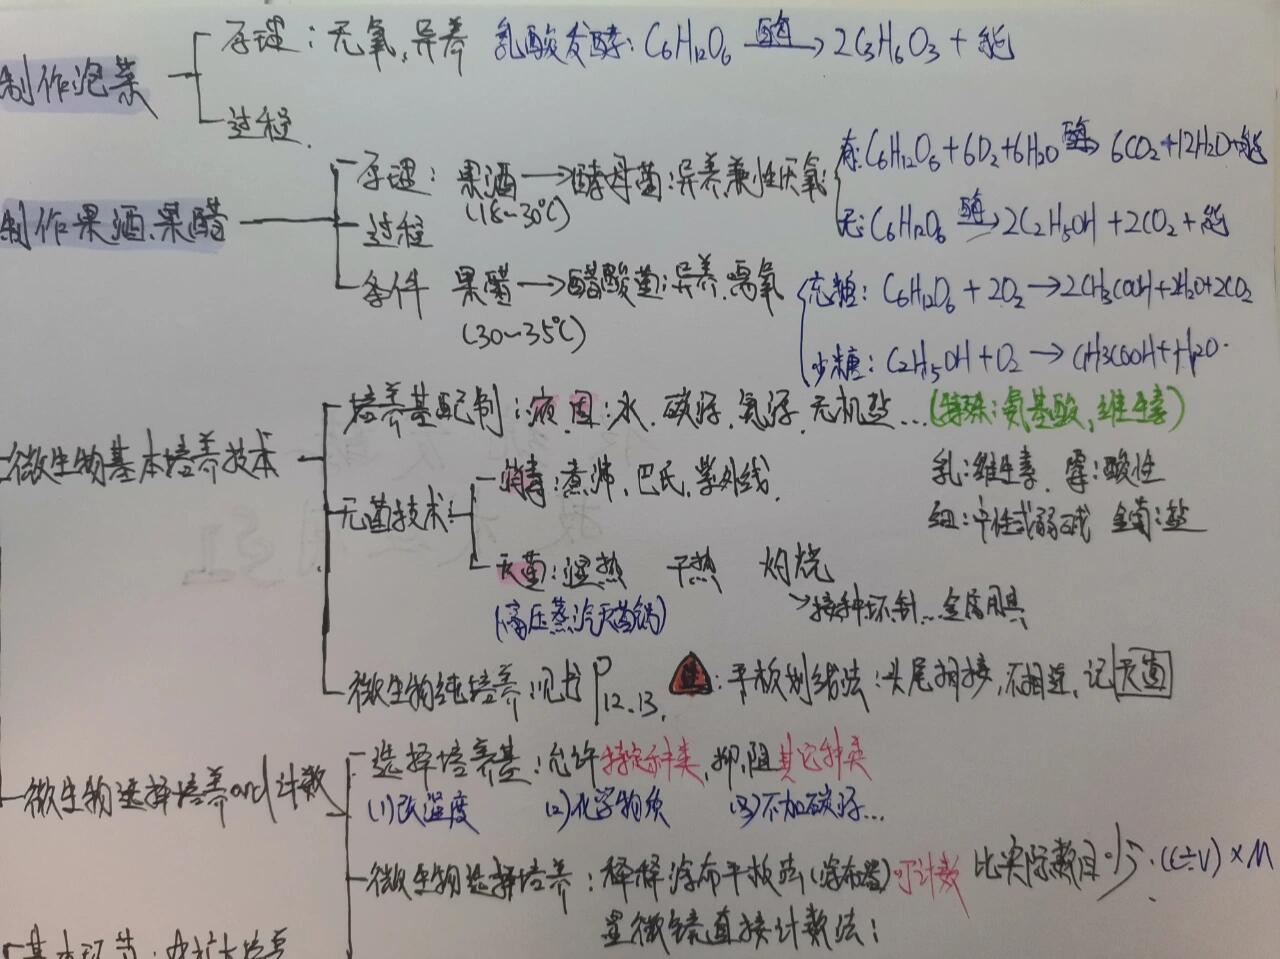 制作泡菜
原理：无氧、异养 乳酸发酵：C6H12O6 酶→ 2C3H6O3 + 能
过程
制作果酒、果醋
原理：果酒→酵母菌：异养兼性厌氧
(18~30℃)
有：C6H12O6+6O2+6H2O 酶→ 6CO2+12H2O+能
无：C6H12O6 酶→ 2C2H5OH+2CO2+能
过程
条件 果醋→醋酸菌：异养、需氧
(30~35℃)
充糖：C6H12O6+2O2→2CH3COOH+2H2O+2CO2
少糖：C2H5OH+O2→CH3COOH+H2O.
微生物基本培养技术
培养基配制：液、固：水、碳源、氮源、无机盐...(特殊：氨基酸、维生素)
乳：维生素、霉：酸性
细：中性或弱碱 金葡：盐
无菌技术：
消毒：煮沸、巴氏、紫外线.
灭菌：湿热 干热 灼烧
(高压蒸汽灭菌锅)
→接种环、针...金属用具
微生物纯培养：见书P12.13.
注：平板划线法：头尾相接，不相连，记灭菌
微生物选择培养and计数
选择培养基：允许特定种类，抑、阻其它种类
(1)改温度 (2)化学物质 (3)不加碳源...
微生物选择培养：稀释涂布平板法(涂布器)可计数 比实际数目少.(C÷V)×M
显微镜直接计数法：